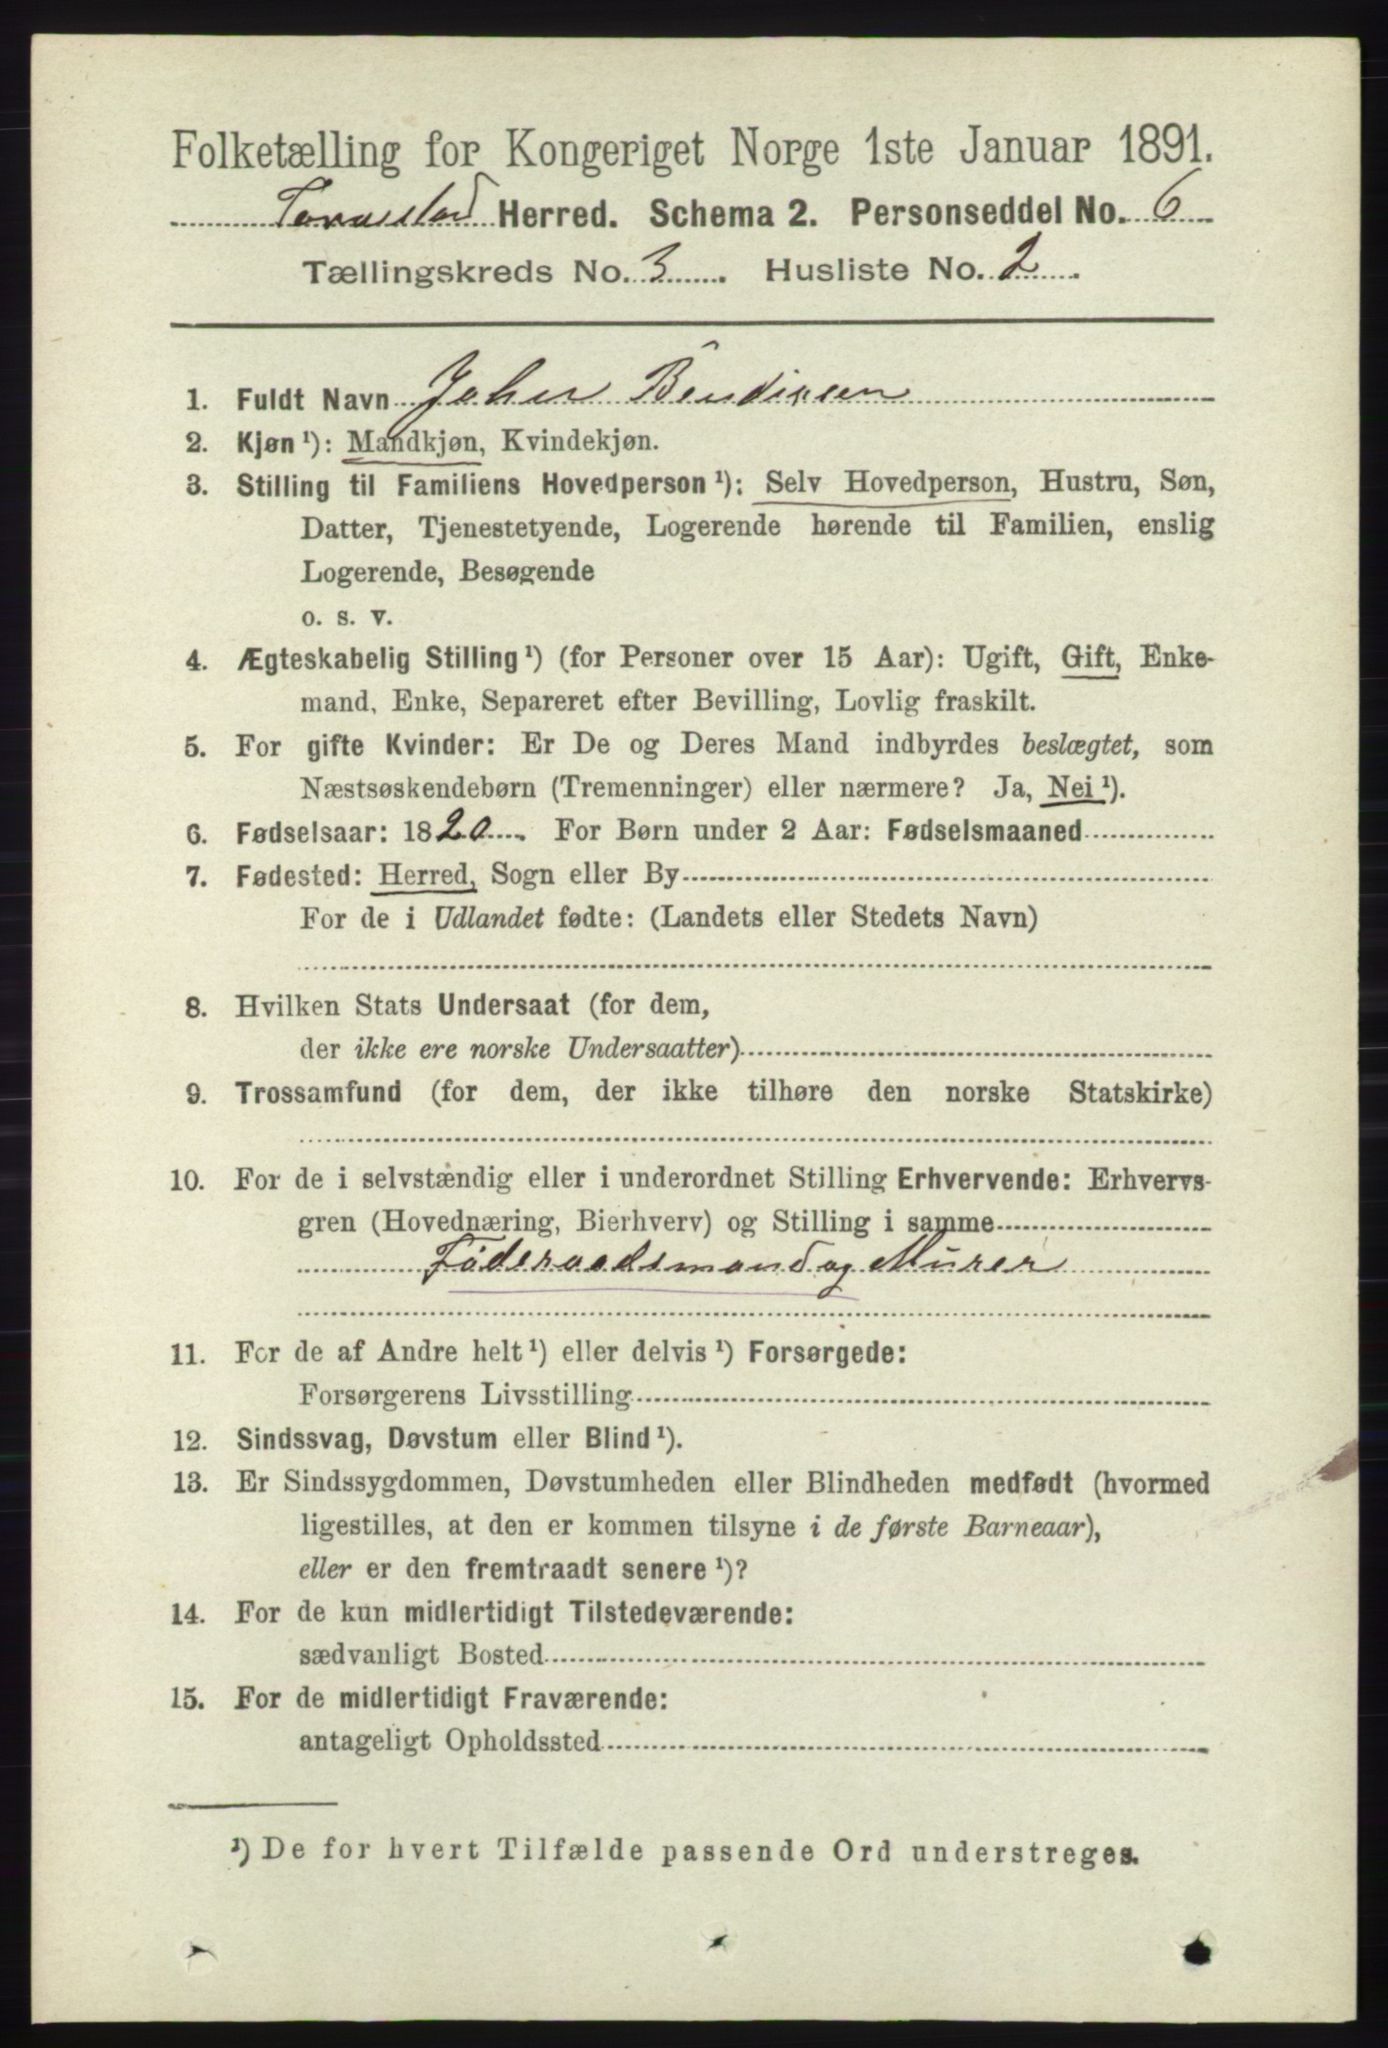 Folketælling for Kongeriget Norge 1ste Januar 1891.
Herred. Schema 2. Personseddel No. 6
Tællingskreds No. 3. Husliste No. 2.
1. Fuldt Navn Johan Bendixen
2. Kjøn¹): Mandkjøn, Kvindekjøn.
3. Stilling til Familiens Hovedperson¹): Selv Hovedperson, Hustru, Søn,
Datter, Tjenestetyende, Logerende hørende til Familien, enslig
Logerende, Besøgende
o. s. v.
4. Ægteskabelig Stilling¹) (for Personer over 15 Aar): Ugift, Gift, Enke-
mand, Enke, Separeret efter Bevilling, Lovlig fraskilt.
5. For gifte Kvinder: Er De og Deres Mand indbyrdes beslægtet, som
Næstsøskendebørn (Tremenninger) eller nærmere? Ja, Nei¹).
6. Fødselsaar: 1820. For Børn under 2 Aar: Fødselsmaaned
7. Fødested: Herred, Sogn eller By
For de i Udlandet fødte: (Landets eller Stedets Navn)
8. Hvilken Stats Undersaat (for dem,
der ikke ere norske Undersaatter)
9. Trossamfund (for dem, der ikke tilhøre den norske Statskirke)
10. For de i selvstændig eller i underordnet Stilling Erhvervende: Erhvervs-
gren (Hovednæring, Bierhverv) og Stilling i samme
Føderaadsmand og Murer
11. For de af Andre helt¹) eller delvis¹) Forsørgede:
Forsørgerens Livsstilling
12. Sindssvag, Døvstum eller Blind¹).
13. Er Sindssygdommen, Døvstumheden eller Blindheden medfødt (hvormed
ligestilles, at den er kommen tilsyne i de første Barneaar),
eller er den fremtraadt senere¹)?
14. For de kun midlertidigt Tilstedeværende:
sædvanligt Bosted
15. For de midlertidigt Fraværende:
antageligt Opholdssted
¹) De for hvert Tilfælde passende Ord understreges.